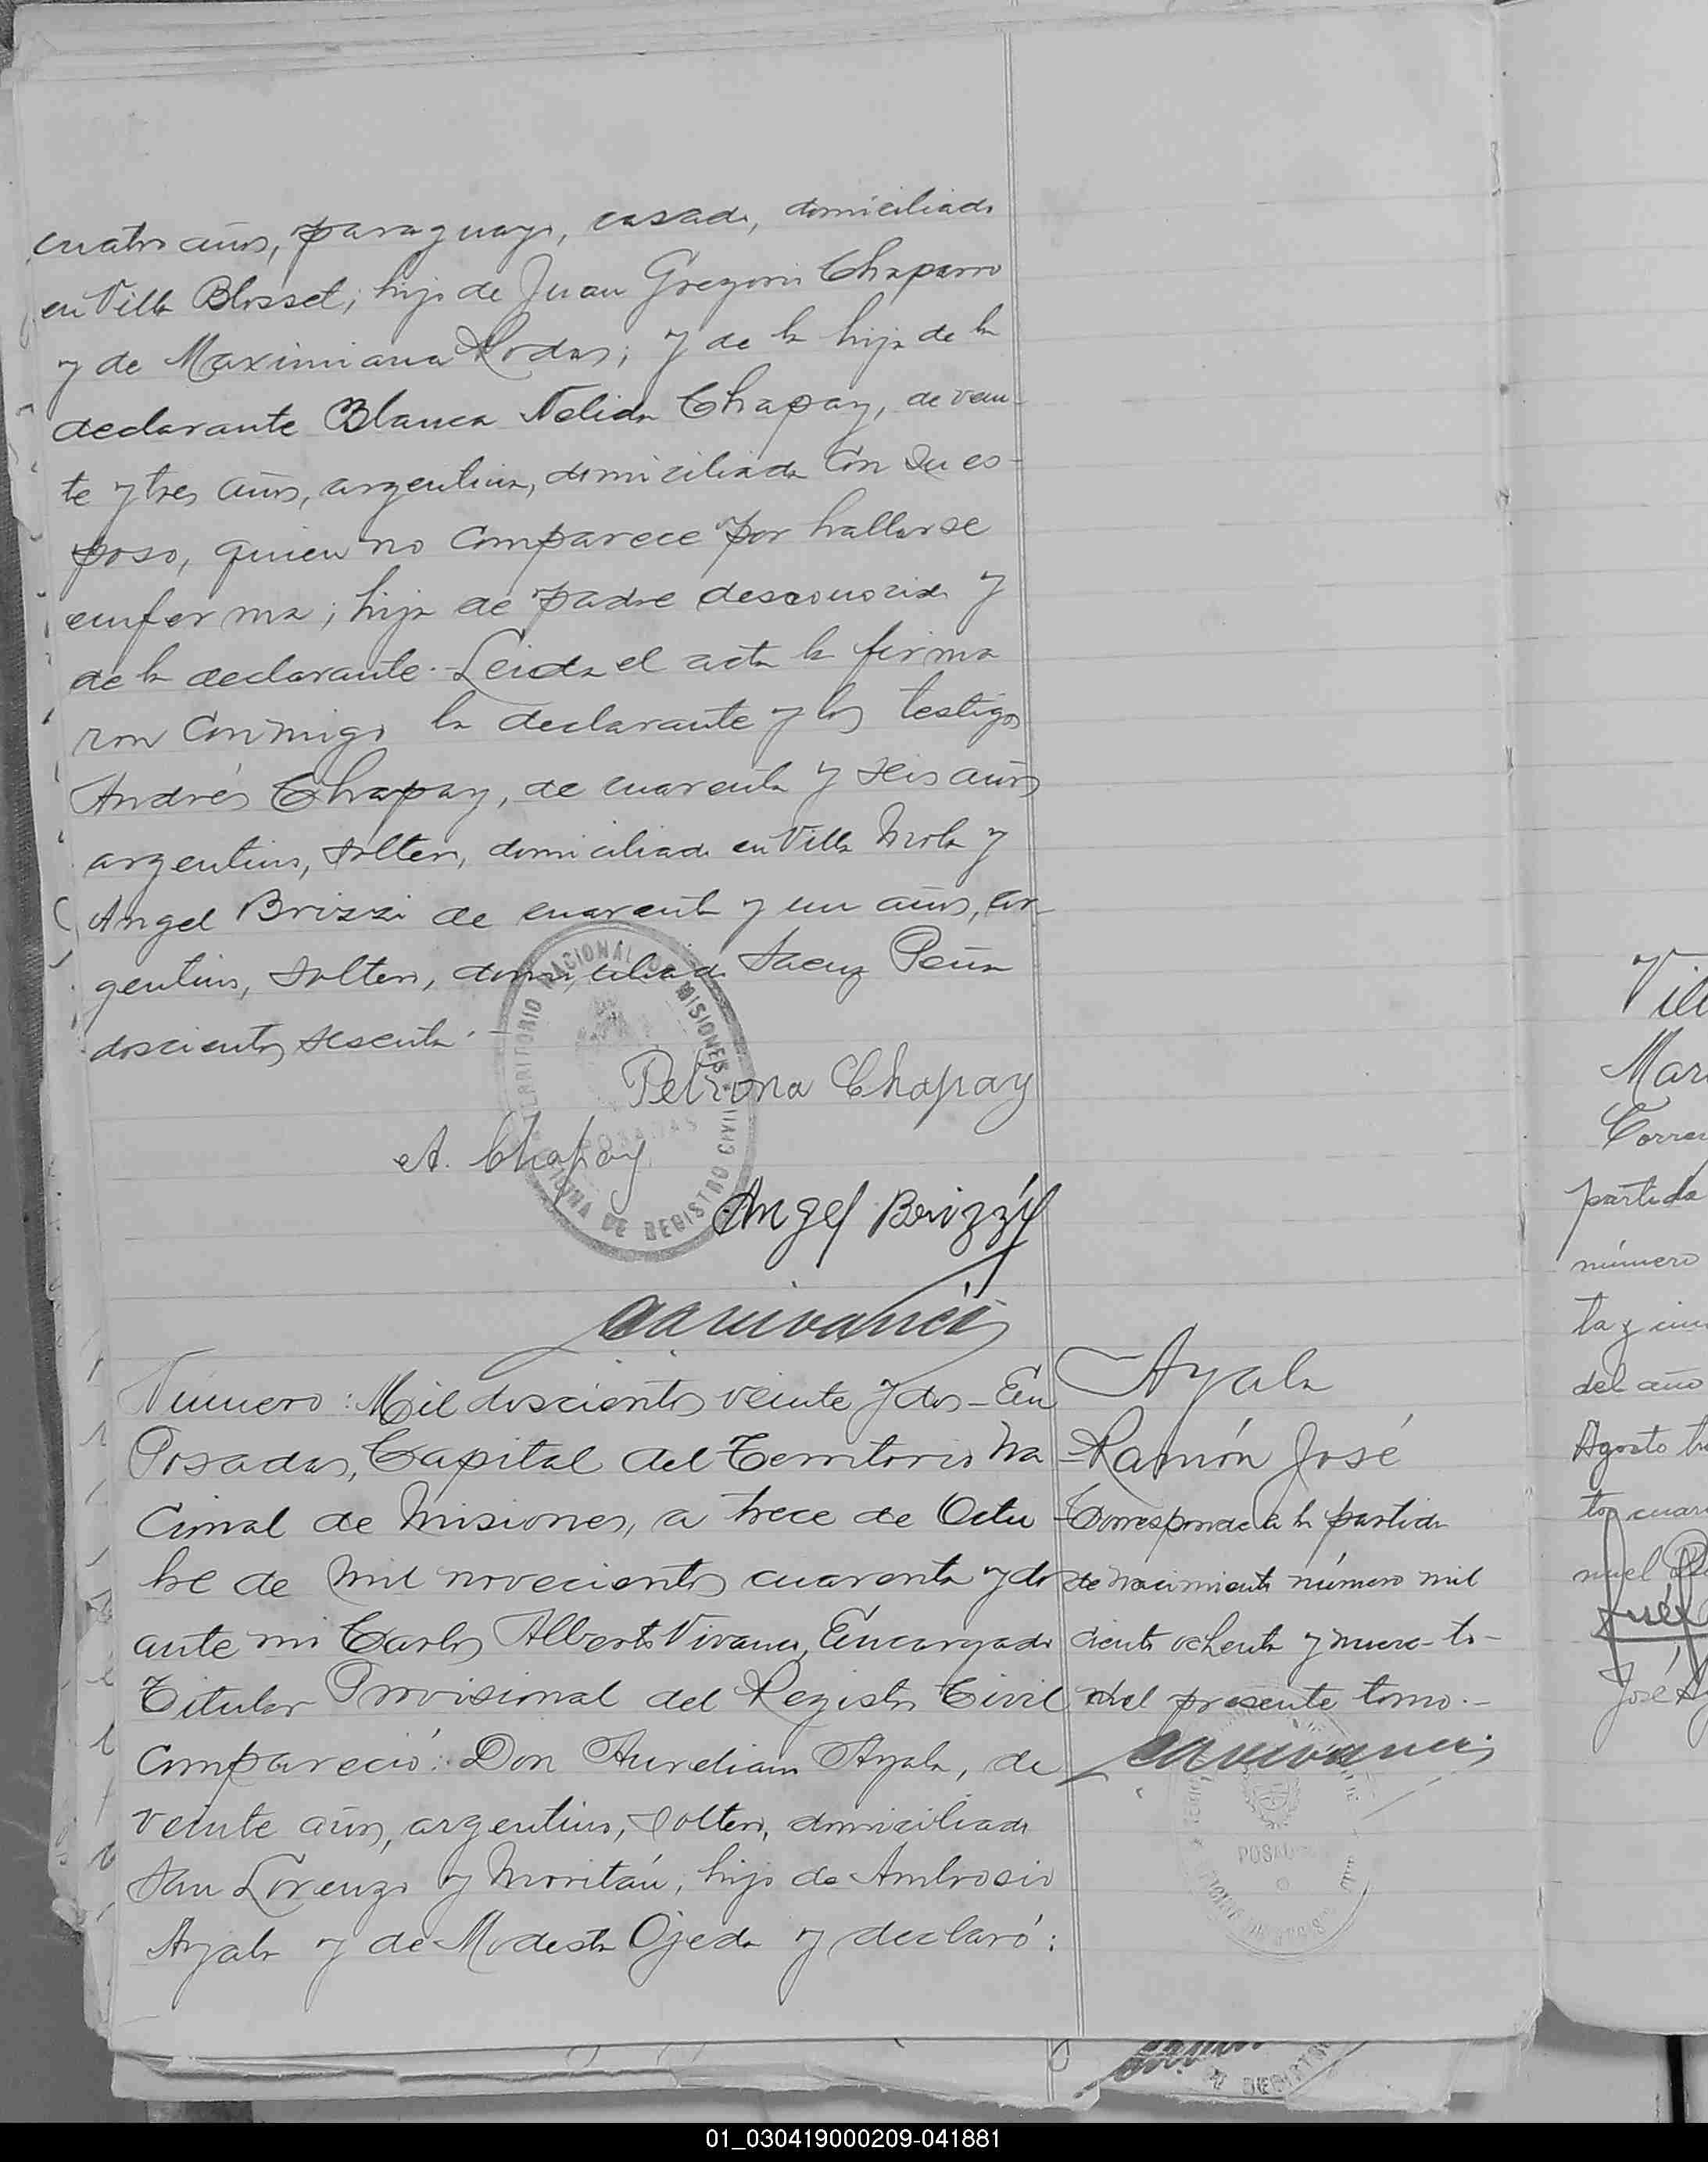 cuatro años, paraguayo, casado, domiciliado
en Villa Blosset; hijo de Juan Gregorio Chaparro
y de Maximiana Rodas; y de la hija de la
declarante Blanca Nelida Chapay, de vein-
te y tres años, argentina, domiciliada con su es-
poso, quien no comparece por hallarse
enferma; hija de padre desconocido y
de la declarante. Leida el acta la firma
ron conmigo la declarante y los testigos
Andrés Chapay, de cuarenta y seis años
argentino, soltero, domiciliado en Villa Mola y
Angel Brizzi de cuarenta y un años, ar-
gentino, soltero, domiciliado Saenz Peña
doscientos sesenta.
TERRITORIO NACIONAL DE MISIONES
POSADAS
OFICINA DE REGISTRO CIVIL
Petrona Chapay
A. Chapay
Angel Brizzi
Número: Mil doscientos veinte y dos - En
Posadas, Capital del Territorio Na
cional de Misiones, a trece de Octu
bre de mil novecientos cuarenta y dos
ante mi Carlos Alberto Vivanco, Encargado
Titular Provisional del Registro Civil
compareció: Don Aureliano Ayala, de
veinte años, argentino, soltero, domiciliado
San Lorenzo y Moritán; hijo de Ambrosio
Ayala y de Modesta Ojeda y declaró:
Ayala
Ramón José
Corresponde a la partida
de nacimiento número mil
ciento ochenta y nueve - to -
del presente tomo. -
POSADAS
Mar
partida
número
ta y
del año
Agosto
José
01_030419000209-041881